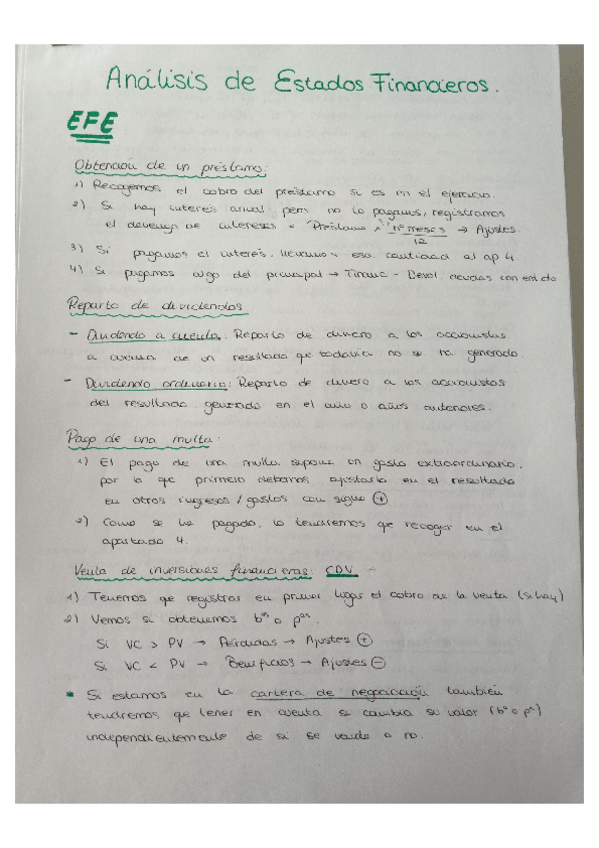 Análisis de Estados Financieros.
EFE
Obtención de un préstamo:
1) Recogemos el cobro del préstamo si es en el ejercicio.
2) Si hay interés anual pero no lo pagamos, registramos
el devengo de intereses = Préstamo x % x nº meses / 12 → Ajustes.
3) Si pagamos el interés, llevamos esa cantidad al ap 4.
4) Si pagamos algo del principal → Financ - Devol. deudas con ent. cdo
Reparto de dividendos
- Dividendo a cuenta: Reparto de dinero a los accionistas
a cuenta de un resultado que todavía no se ha generado.
- Dividendo ordinario: Reparto de dinero a los accionistas
del resultado generado en el año o años anteriores.
Pago de una multa:
1) El pago de una multa supone un gasto extraordinario,
por lo que primero debemos ajustarlo en el resultado
en otros ingresos / gastos con signo +
2) Como se ha pagado, lo tendremos que recoger en el
apartado 4.
Venta de inversiones financieras: CDV
1) Tenemos que registrar en primer lugar el cobro de la venta (si hay)
2) Vemos si obtenemos bºs o pºs.
Si VC > PV → Pérdidas → Ajustes +
Si VC < PV → Beneficios → Ajustes -
* Si estamos en la cartera de negociación también
tendremos que tener en cuenta si cambia su valor (bº o pº)
independientemente de si se vende o no.